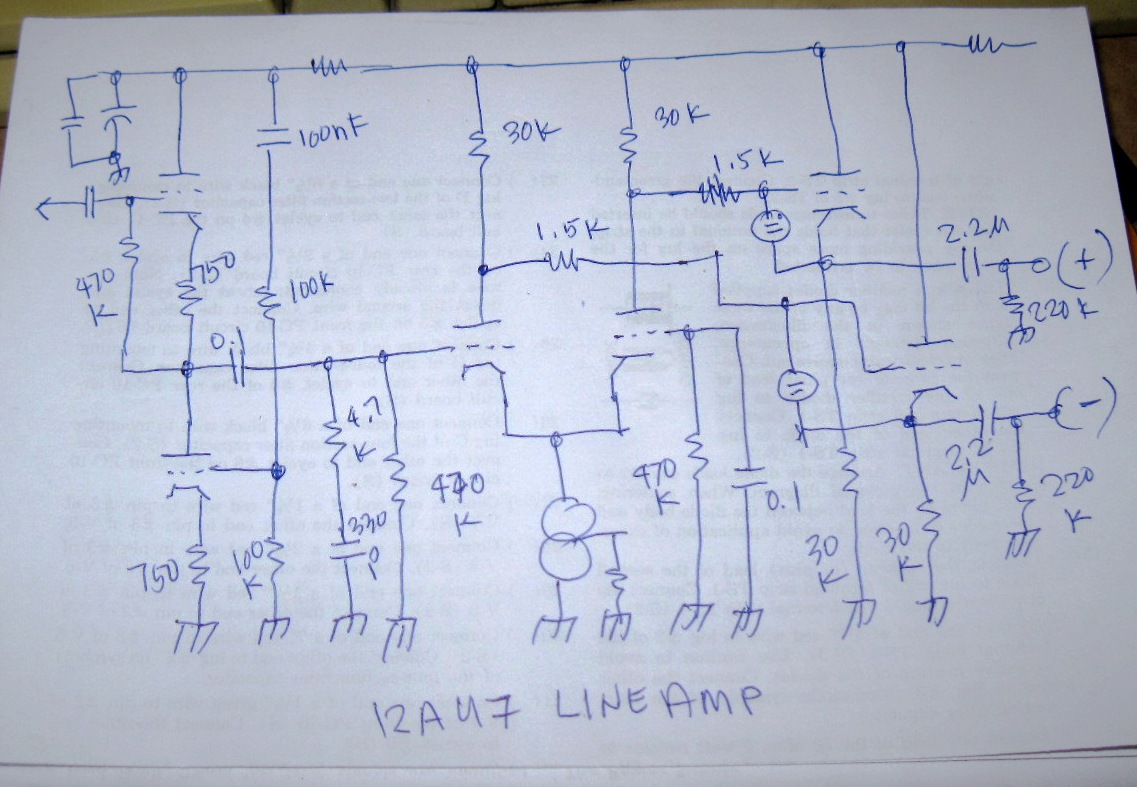 100nF
30K
30K
1.5K
1.5K
2.2M
(+)
220K
470
K
750
100K
0.1
4.7
K
470
K
330
P
750
100
K
470
K
0.1
30
K
30
K
2.2
M
(-)
220
K
12AU7 LINE AMP